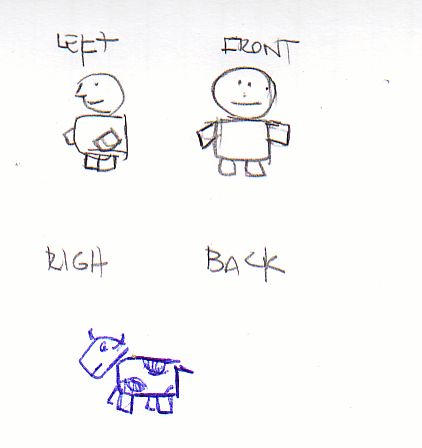 LEFT FRONT
RIGH BACK